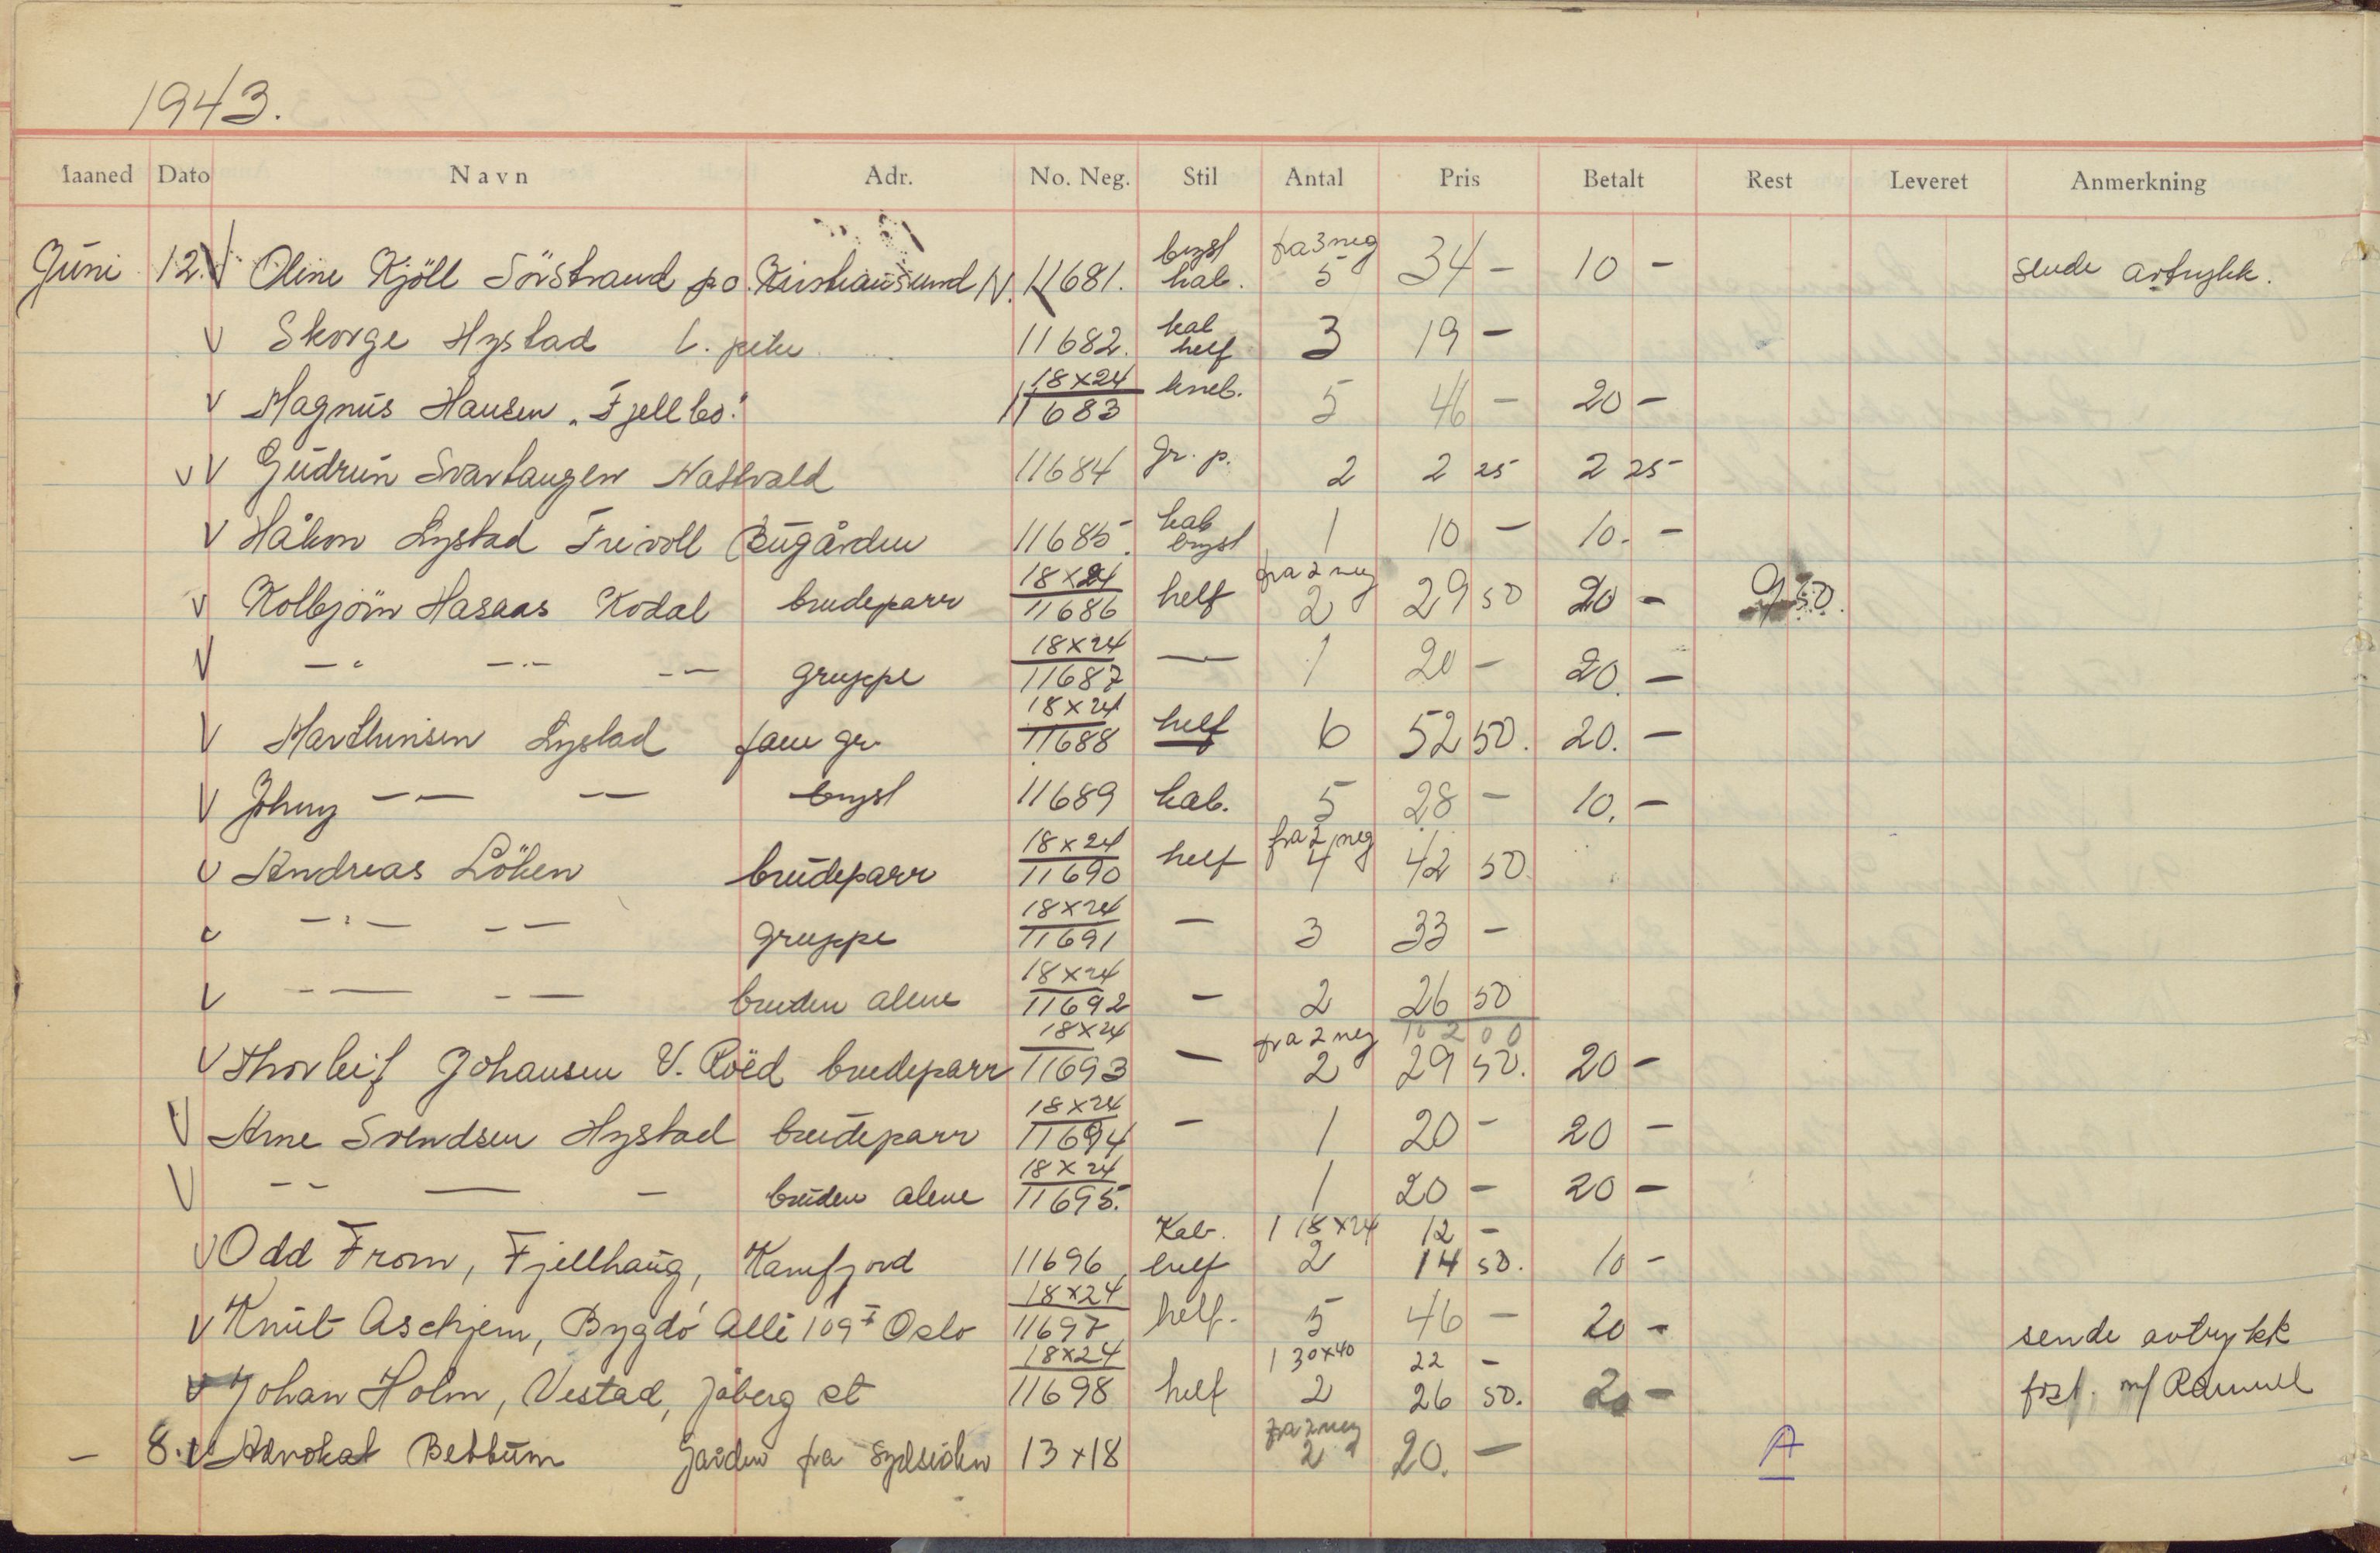 1943.
Maaned Dato Navn Adr. No. Neg. Stil Antal Pris Betalt Rest Leveret Anmerkning
Juni 12. V Oline Kjöll Sörstrand p.o. Kristiansund N. 11681. bryst kab. fra 3 neg 5 34 - 10 - sende avtrykk.
V Skorge Hystad 11682. kab helf 3 19 -
V Magnus Hansen "Fjellbo." 18x24 11683 kneb. 5 46 - 20 -
V V Gudrun Svartaugen Nattvald 11684 gr. p. 2 2 25 2 25
V Håkon Lystad Trivoll Bugården 11685. kab bryst 1 10 - 10. -
V Kolbjörn Hasaas Kodal brudeparr 18x24 11686 helf fra 2 neg 2 29 50 20 - 9 50.
V -"- -"- -- gruppe 18x24 11687 — 1 20 - 20. -
V Marthinsen Lystad fam gr. 18x24 11688 helf 6 52 50. 20. -
V Johny -- -- bryst 11689 kab. 5 28 - 10. -
V Andreas Löken brudeparr 18x24 11690 helf fra 2 neg 4 42 50
-"- -- gruppe 18x24 11691 - 3 33 -
V -- -- bruden alene 18x24 11692 - 2 26 50
102 00
V Thorleif Johansen V. Röed brudeparr 18x24 11693 - fra 2 neg 2 29 50. 20 -
V Arne Svendsen Hystad brudeparr 18x24 11694 - 1 20 - 20 -
V -- — - bruden alene 18x24 11695. 1 20 - 20 -
Kab. 1 18x24 12 -
V Odd From, Fjellhaug, Kamfjord 11696 helf 2 14 50. 10 -
V Knut Aschjem, Bygdö Alle 109 I Oslo 18x24 11697 helf. 5 46 - 20 - sende avtrykk
1 30x40 22 -
V Johan Holm, Vestad, Jåberg st 18x24 11698 helf 2 26 50. 20 -
- 8. V Advokat Bettum Gården fra Sydsiden 13x18 fra 2 neg 2 20. - A